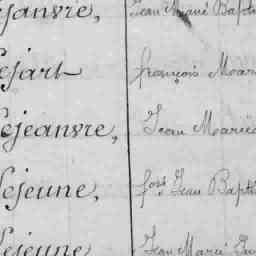 ejanvre, Jean Marie Bapti
ejart françois Moari
ejeanvre, Jean Moarie
ejeune, fois Jean Bapti
ejeune Jean Marie